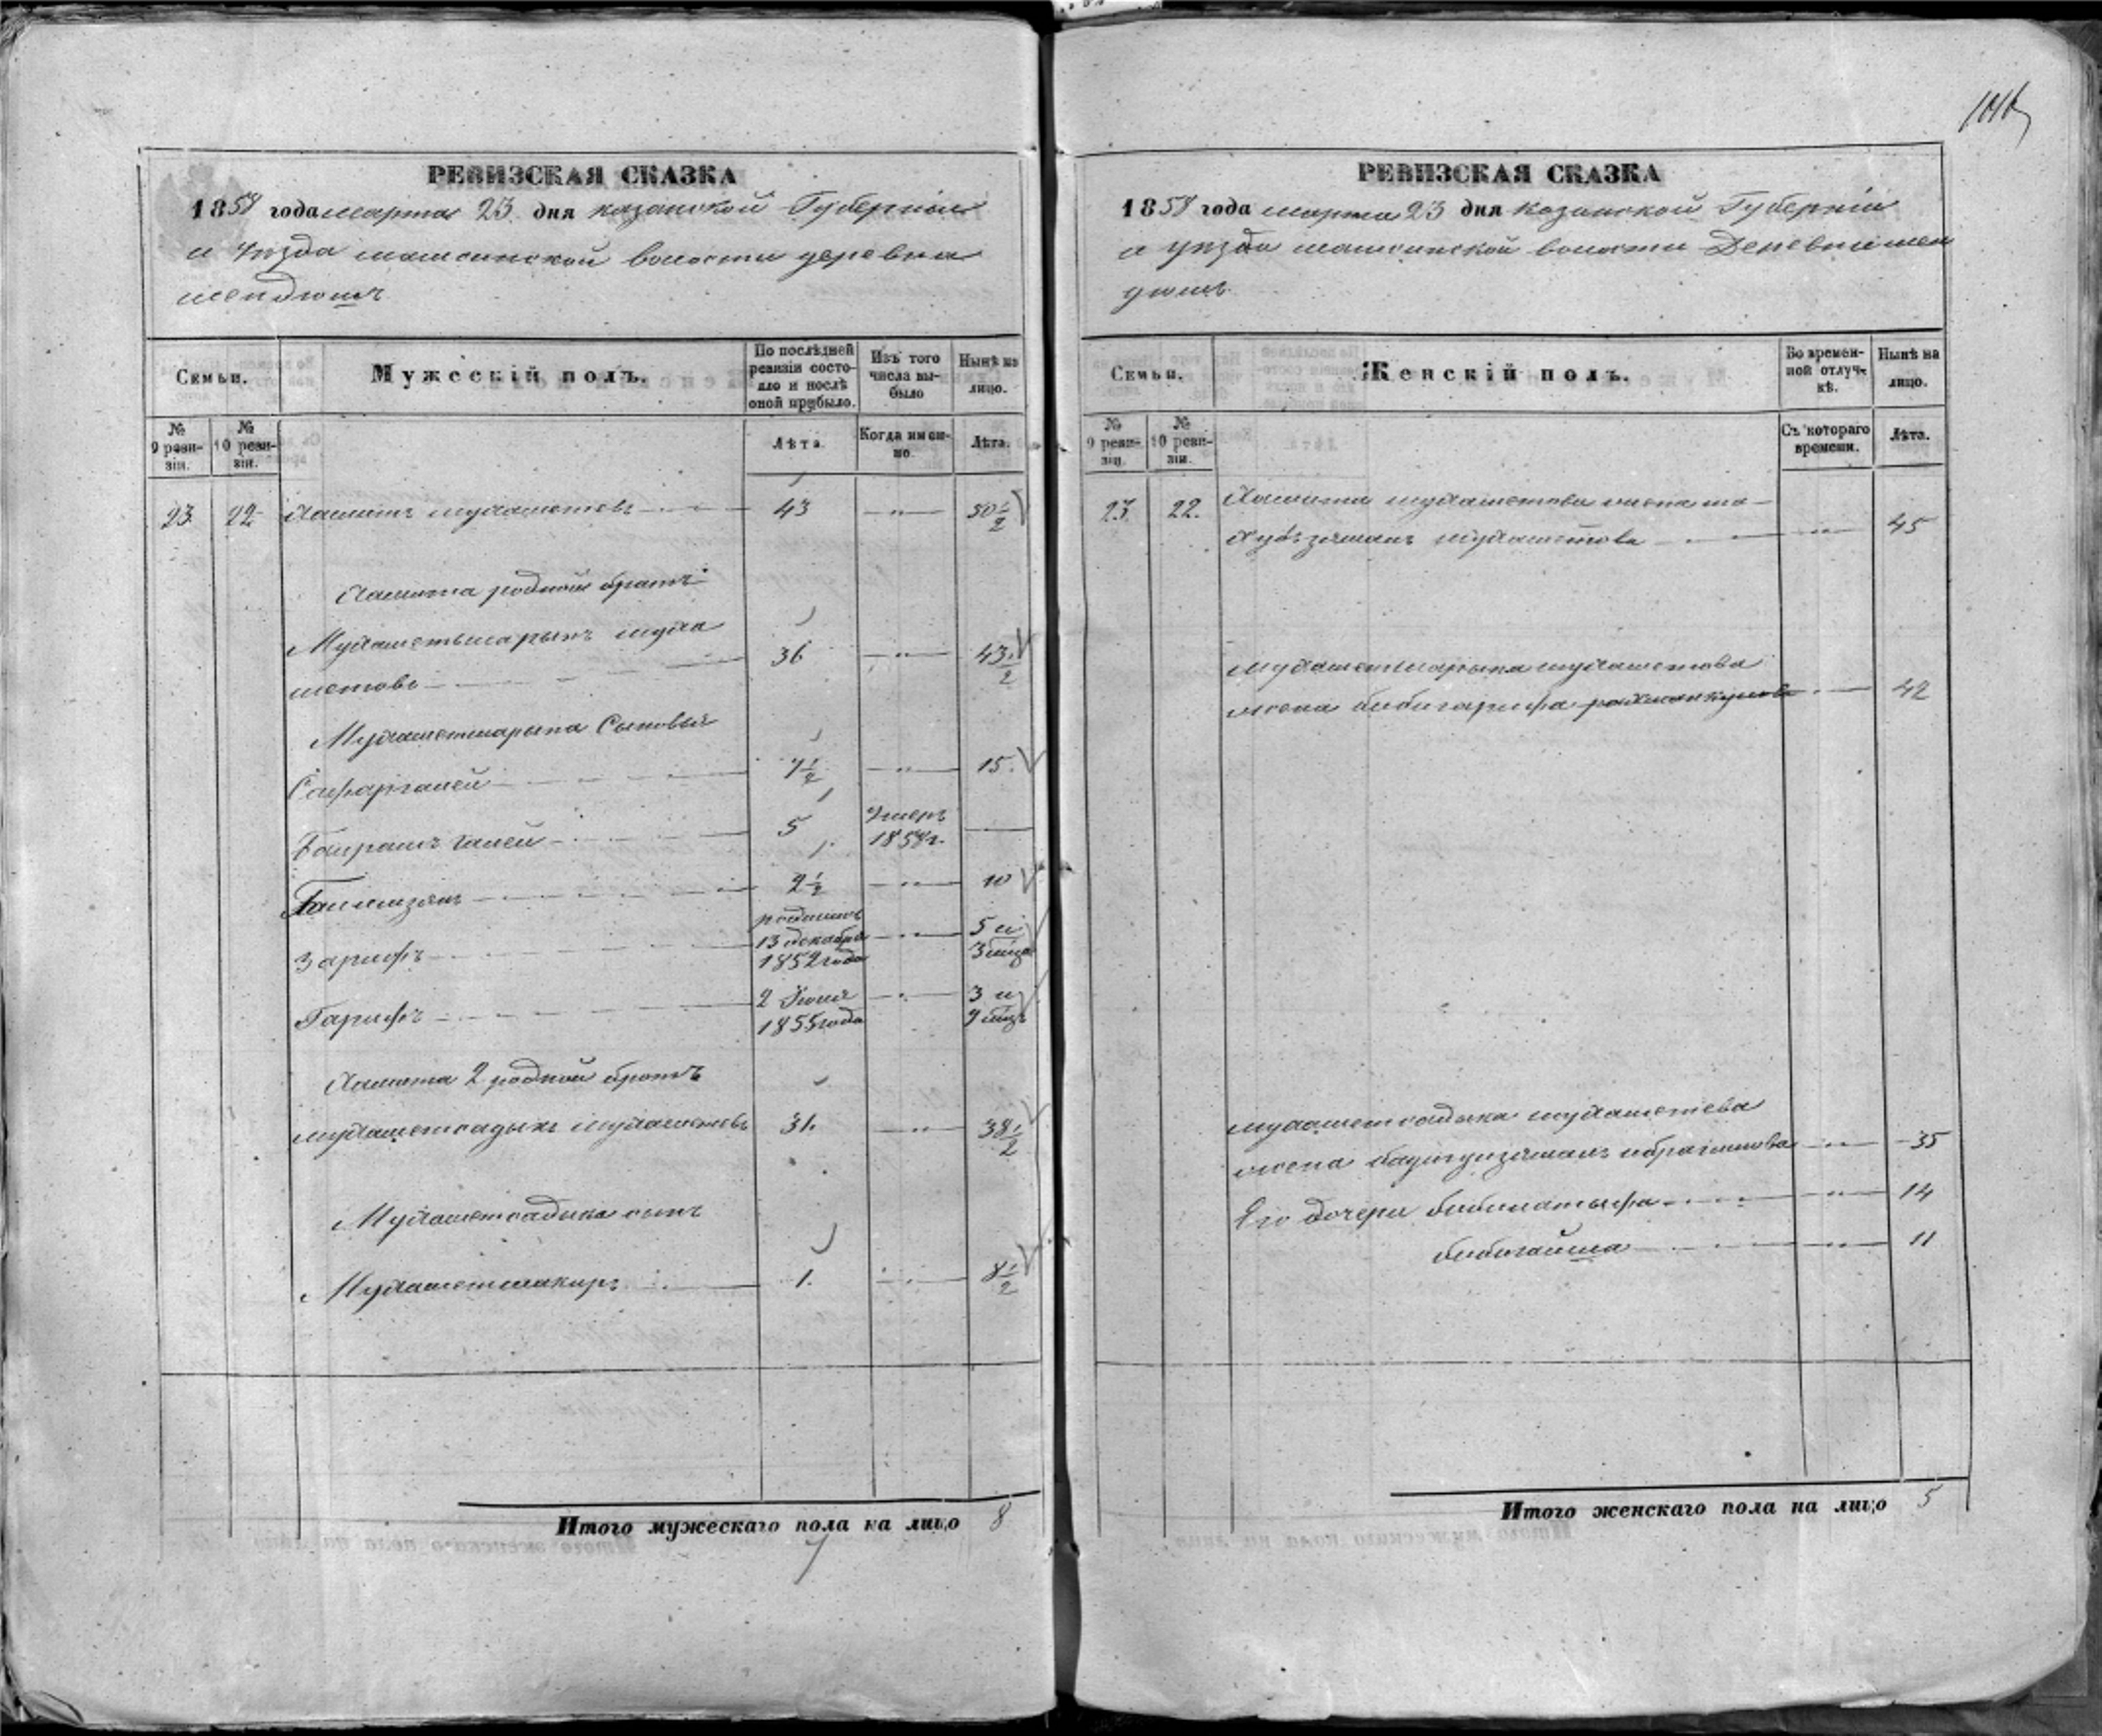 РЕВИЗСКАЯ СКАЗКА
1858 года марта 23 дня казанской Губернии
и уезда мамсинской волости деревна
мендюшъ
Семьи.
Мужескій полъ.
По послѣдней ревизіи состояло и послѣ оной прибыло.
Изъ того числа выбыло
Нынѣ на лицо.
№ 9 ревизіи.
№ 10 ревизіи.
Лѣта.
Когда именно.
Лѣта.
23 22 Хамитъ мухаметовъ 43 — " — 50 1/2
Хамита родной братъ
Мухаметшарыпъ муха
метовъ 36 — " — 43 1/2
Мухаметшарыпа Сыновья
Сафаргалей 7 1/2 — " — 15.
Баирамъ галей 5 Умеръ 1854г. —
Галимзянъ 2 1/2 — " — 10
Зарифъ родился 13 декабря 1852 года — " — 5 и 3 мца
Гарифъ 2 Июня 1855 года — " — 3 и 9 мцъ
Хамита 2 родной братъ
мухаметсадыкъ мухаметовъ 31. — " — 38 1/2
Мухаметсадыка сынъ
Мухаметшакиръ 1. — " — 8 1/2
Итого мужескаго пола на лицо 8
7
РЕВИЗСКАЯ СКАЗКА
1858 года марта 23 дня казанской Губерніи
и уезда мамсинской волости Деревни мен
дюшъ
Семьи.
Женскій полъ.
Во временной отлучкѣ.
Нынѣ на лицо.
№ 9 ревизіи.
№ 10 ревизіи.
Съ котораго времени.
Лѣта.
23 22. Хамита мухаметова жена ма-
хубъзямалъ мухаметова — " — 45
мухаметшарыпа мухаметова
жена бибигарифа рахманкулова — " — 42
мухаметсадыка мухаметева
жена ибрагимова — " — 35
Его дочери бибилатыфа — " — 14
бибигайша — " — 11
Итого женскаго пола на лицо 5